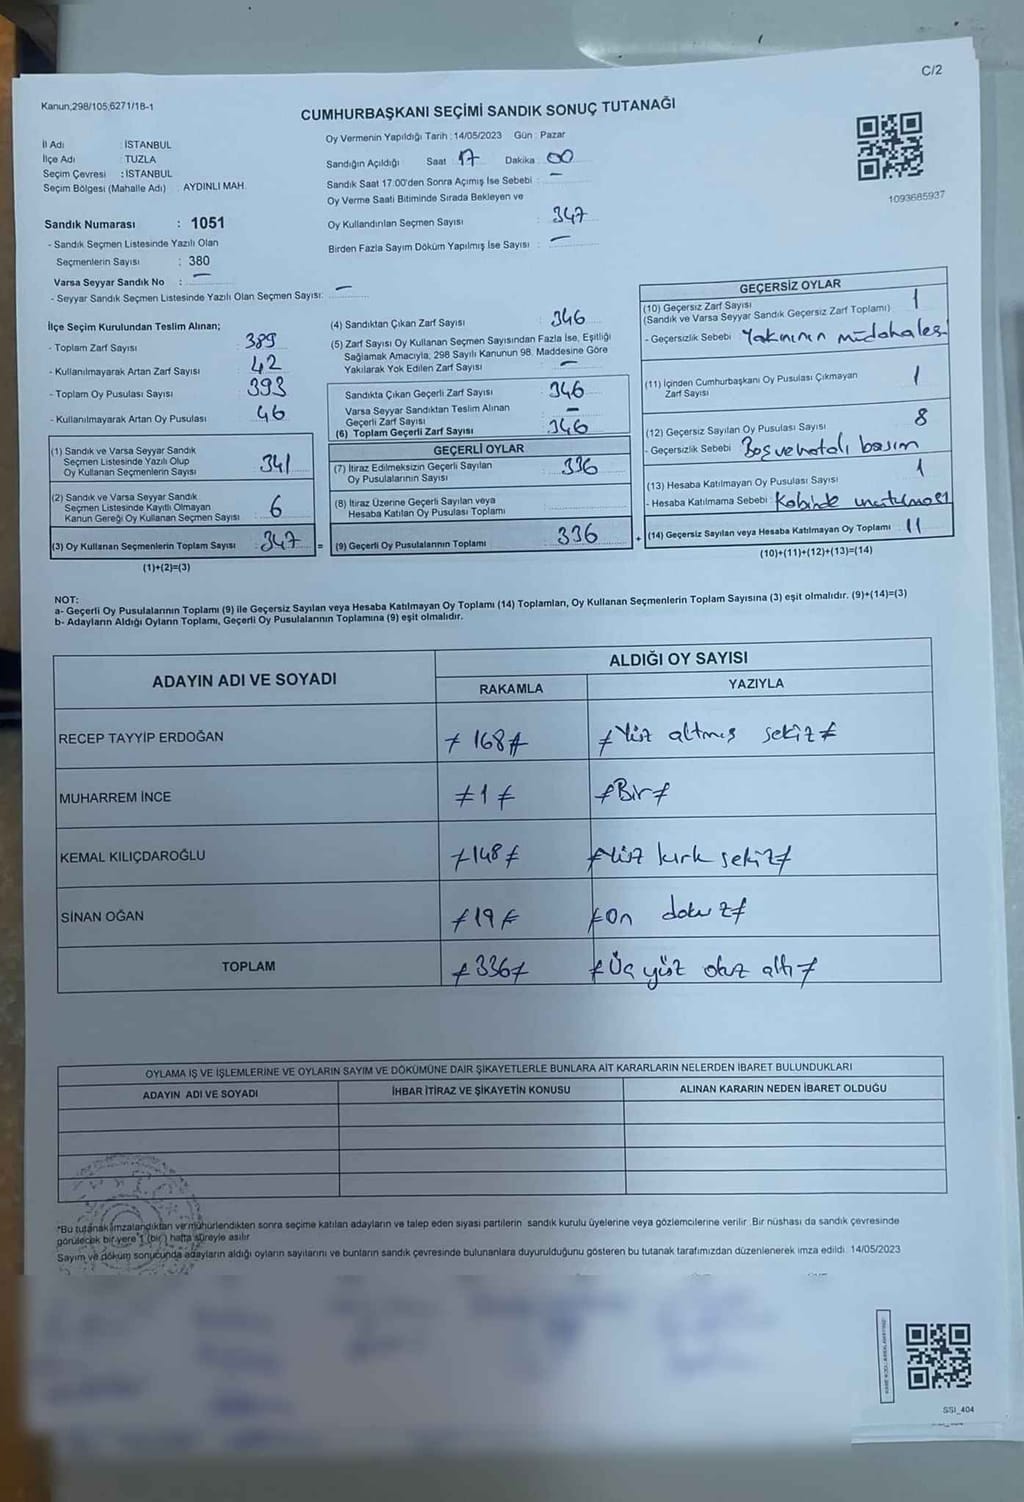 C/2
Kanun;298/105;6271/18-1
CUMHURBAŞKANI SEÇİMİ SANDIK SONUÇ TUTANAĞI
İl Adı : İSTANBUL
İlçe Adı : TUZLA
Seçim Çevresi : İSTANBUL
Seçim Bölgesi (Mahalle Adı) : AYDINLI MAH.
Sandık Numarası : 1051
- Sandık Seçmen Listesinde Yazılı Olan
Seçmenlerin Sayısı : 380
Varsa Seyyar Sandık No : —
- Seyyar Sandık Seçmen Listesinde Yazılı Olan Seçmen Sayısı: —
Oy Vermenin Yapıldığı Tarih : 14/05/2023 Gün : Pazar
Sandığın Açıldığı Saat : 17 Dakika : 00
Sandık Saat 17:00'den Sonra Açımış İse Sebebi : —
Oy Verme Saati Bitiminde Sırada Bekleyen ve
Oy Kullandırılan Seçmen Sayısı : 347
Birden Fazla Sayım Döküm Yapılmış İse Sayısı : —
1093685937
İlçe Seçim Kurulundan Teslim Alınan;
- Toplam Zarf Sayısı : 389
- Kullanılmayarak Artan Zarf Sayısı : 42
- Toplam Oy Pusulası Sayısı : 393
- Kullanılmayarak Artan Oy Pusulası : 46
(1) Sandık ve Varsa Seyyar Sandık
Seçmen Listesinde Yazılı Olup
Oy Kullanan Seçmenlerin Sayısı : 341
(2) Sandık ve Varsa Seyyar Sandık
Seçmen Listesinde Kayıtlı Olmayan
Kanun Gereği Oy Kullanan Seçmen Sayısı : 6
(3) Oy Kullanan Seçmenlerin Toplam Sayısı : 347 =
(1)+(2)=(3)
(4) Sandıktan Çıkan Zarf Sayısı : 346
(5) Zarf Sayısı Oy Kullanan Seçmen Sayısından Fazla İse, Eşitliği
Sağlamak Amacıyla, 298 Sayılı Kanunun 98. Maddesine Göre
Yakılarak Yok Edilen Zarf Sayısı : —
Sandıkta Çıkan Geçerli Zarf Sayısı : 346
Varsa Seyyar Sandıktan Teslim Alınan
Geçerli Zarf Sayısı : —
(6) Toplam Geçerli Zarf Sayısı : 346
GEÇERLİ OYLAR
(7) İtiraz Edilmeksizin Geçerli Sayılan
Oy Pusulalarının Sayısı : 336
(8) İtiraz Üzerine Geçerli Sayılan veya
Hesaba Katılan Oy Pusulası Toplamı :
(9) Geçerli Oy Pusulalarının Toplamı : 336 +
GEÇERSİZ OYLAR
(10) Geçersiz Zarf Sayısı
(Sandık ve Varsa Seyyar Sandık Geçersiz Zarf Toplamı) 1
- Geçersizlik Sebebi : Yakınının müdahalesi
(11) İçinden Cumhurbaşkanı Oy Pusulası Çıkmayan
Zarf Sayısı 1
(12) Geçersiz Sayılan Oy Pusulası Sayısı 8
- Geçersizlik Sebebi : Boş ve hatalı basım
(13) Hesaba Katılmayan Oy Pusulası Sayısı 1
- Hesaba Katılmama Sebebi : Kabinde unutulması
(14) Geçersiz Sayılan veya Hesaba Katılmayan Oy Toplamı 11
(10)+(11)+(12)+(13)=(14)
NOT:
a- Geçerli Oy Pusulalarının Toplamı (9) ile Geçersiz Sayılan veya Hesaba Katılmayan Oy Toplamı (14) Toplamları, Oy Kullanan Seçmenlerin Toplam Sayısına (3) eşit olmalıdır. (9)+(14)=(3)
b- Adayların Aldığı Oyların Toplamı, Geçerli Oy Pusulalarının Toplamına (9) eşit olmalıdır.
ADAYIN ADI VE SOYADI
ALDIĞI OY SAYISI
RAKAMLA YAZIYLA
RECEP TAYYİP ERDOĞAN ≠168≠ ≠Yüz altmış sekiz≠
MUHARREM İNCE ≠1≠ ≠Bir≠
KEMAL KILIÇDAROĞLU ≠148≠ ≠Yüz kırk sekiz≠
SİNAN OĞAN ≠19≠ ≠On dokuz≠
TOPLAM ≠336≠ ≠Üç yüz otuz altı≠
OYLAMA İŞ VE İŞLEMLERİNE VE OYLARIN SAYIM VE DÖKÜMÜNE DAİR ŞİKAYETLERLE BUNLARA AİT KARARLARIN NELERDEN İBARET BULUNDUKLARI
ADAYIN ADI VE SOYADI İHBAR İTİRAZ VE ŞİKAYETİN KONUSU ALINAN KARARIN NEDEN İBARET OLDUĞU
*Bu tutanak imzalandıktan ve mühürlendikten sonra seçime katılan adayların ve talep eden siyasi partilerin sandık kurulu üyelerine veya gözlemcilerine verilir. Bir nüshası da sandık çevresinde
görülecek bir yere 1 (bir) hafta süreyle asılır.
Sayım ve döküm sonucunda adayların aldığı oyların sayılarını ve bunların sandık çevresinde bulunanlara duyurulduğunu gösteren bu tutanak tarafımızdan düzenlenerek imza edildi. 14/05/2023
SSI_404